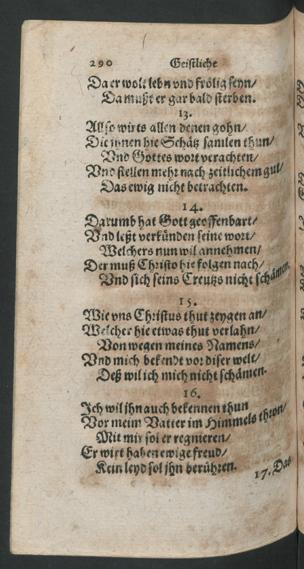 290 Geistliche
Da er wolt lebn vnd frölig seyn/
Da mußt er gar bald sterben.
13.
Also wirts allen denen gohn/
Die jnnen hie Schätz samlen thun/
Vnd Gottes wort verachten/
Vnd stellen mehr nach zeitlichem gut/
Das ewig nicht betrachten.
14.
Darumb hat Gott geoffenbart/
Vnd leßt verkünden seine wort/
Welchers nun wil annehmen/
Der muß Christo hie folgen nach/
Vnd sich seins Creutzs nicht schämen.
15.
Wie vns Christus thut zeygen an/
Welcher hie etwas thut verlahn/
Von wegen meines Namens/
Vnd mich bekendt vor diser welt/
Deß wil ich mich nicht schämen.
16.
Ich wil jhn auch bekennen thun
Vor meim Vatter im Himmels thron/
Mit mir sol er regnieren/
Er wirt haben ewige freud/
Kein leyd sol jhn berühren.
17. Das